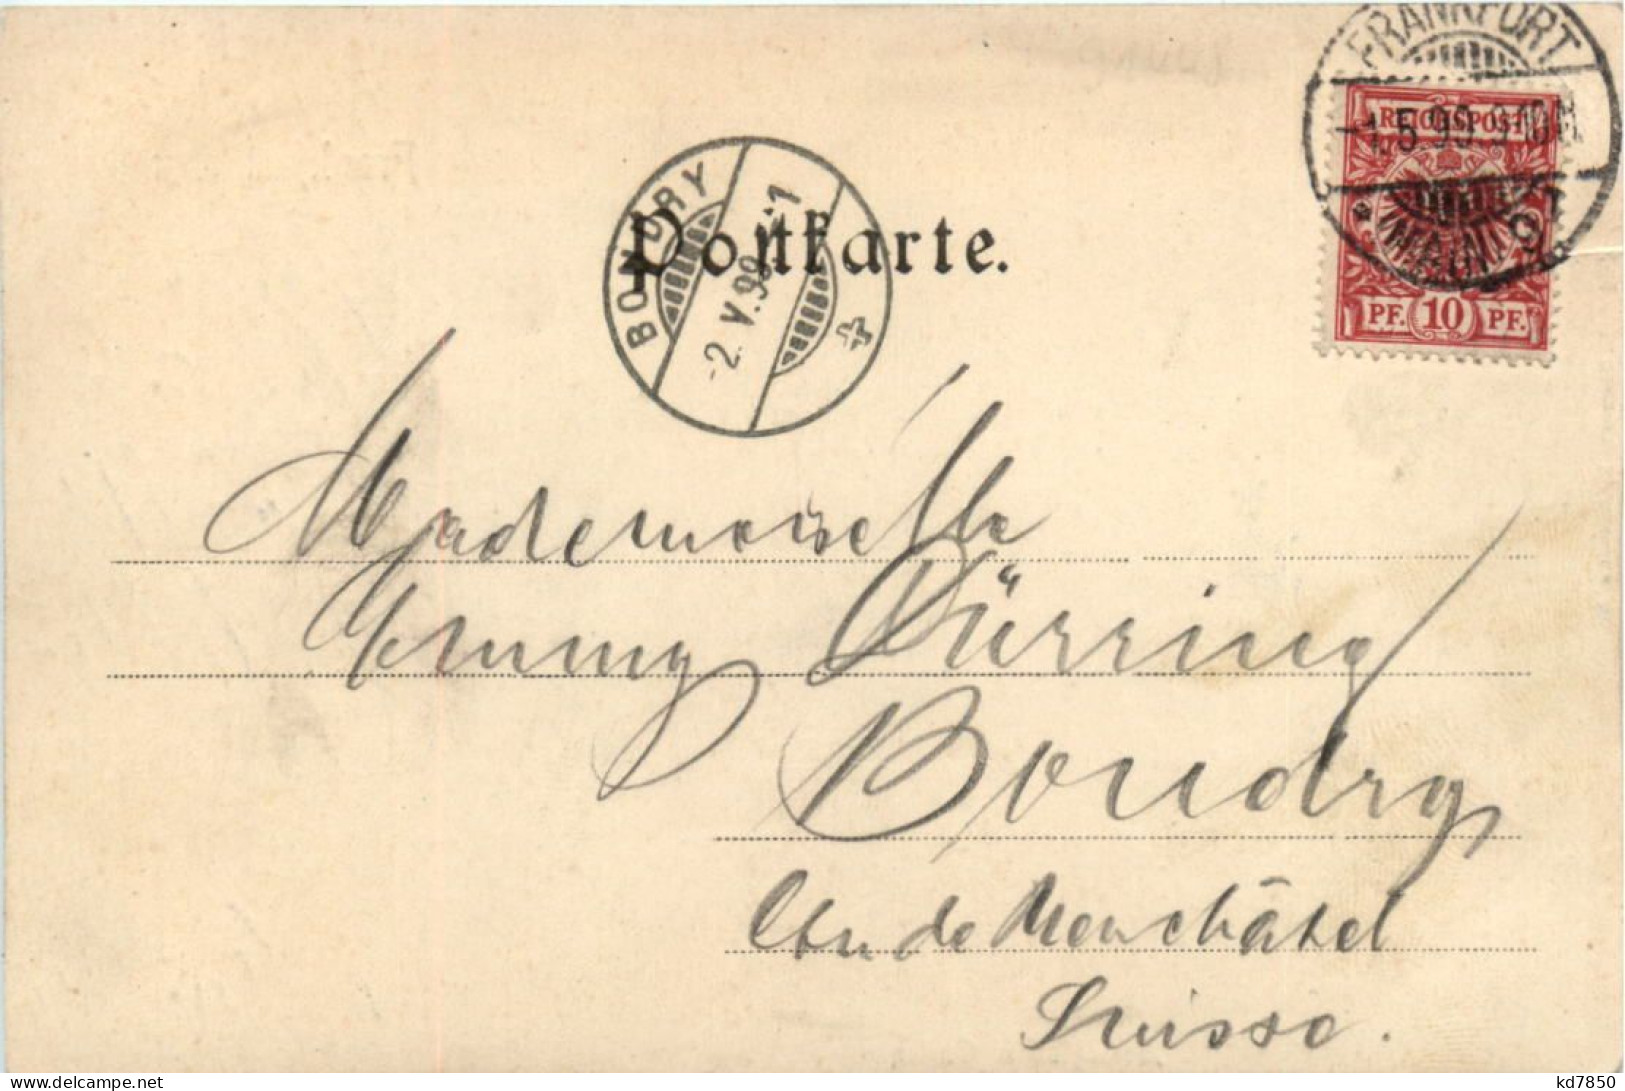 FRANKFURT
REICHSPOST
1.5.99. 9-10N.
(MAIN) 9
PF. 10 PF.
BOUDRY
-2.V.99.-1
Postkarte.
Mademoiselle
Emmy Dürring
Boudry
Ctn de Neuchâtel
Suisse.
kd7850